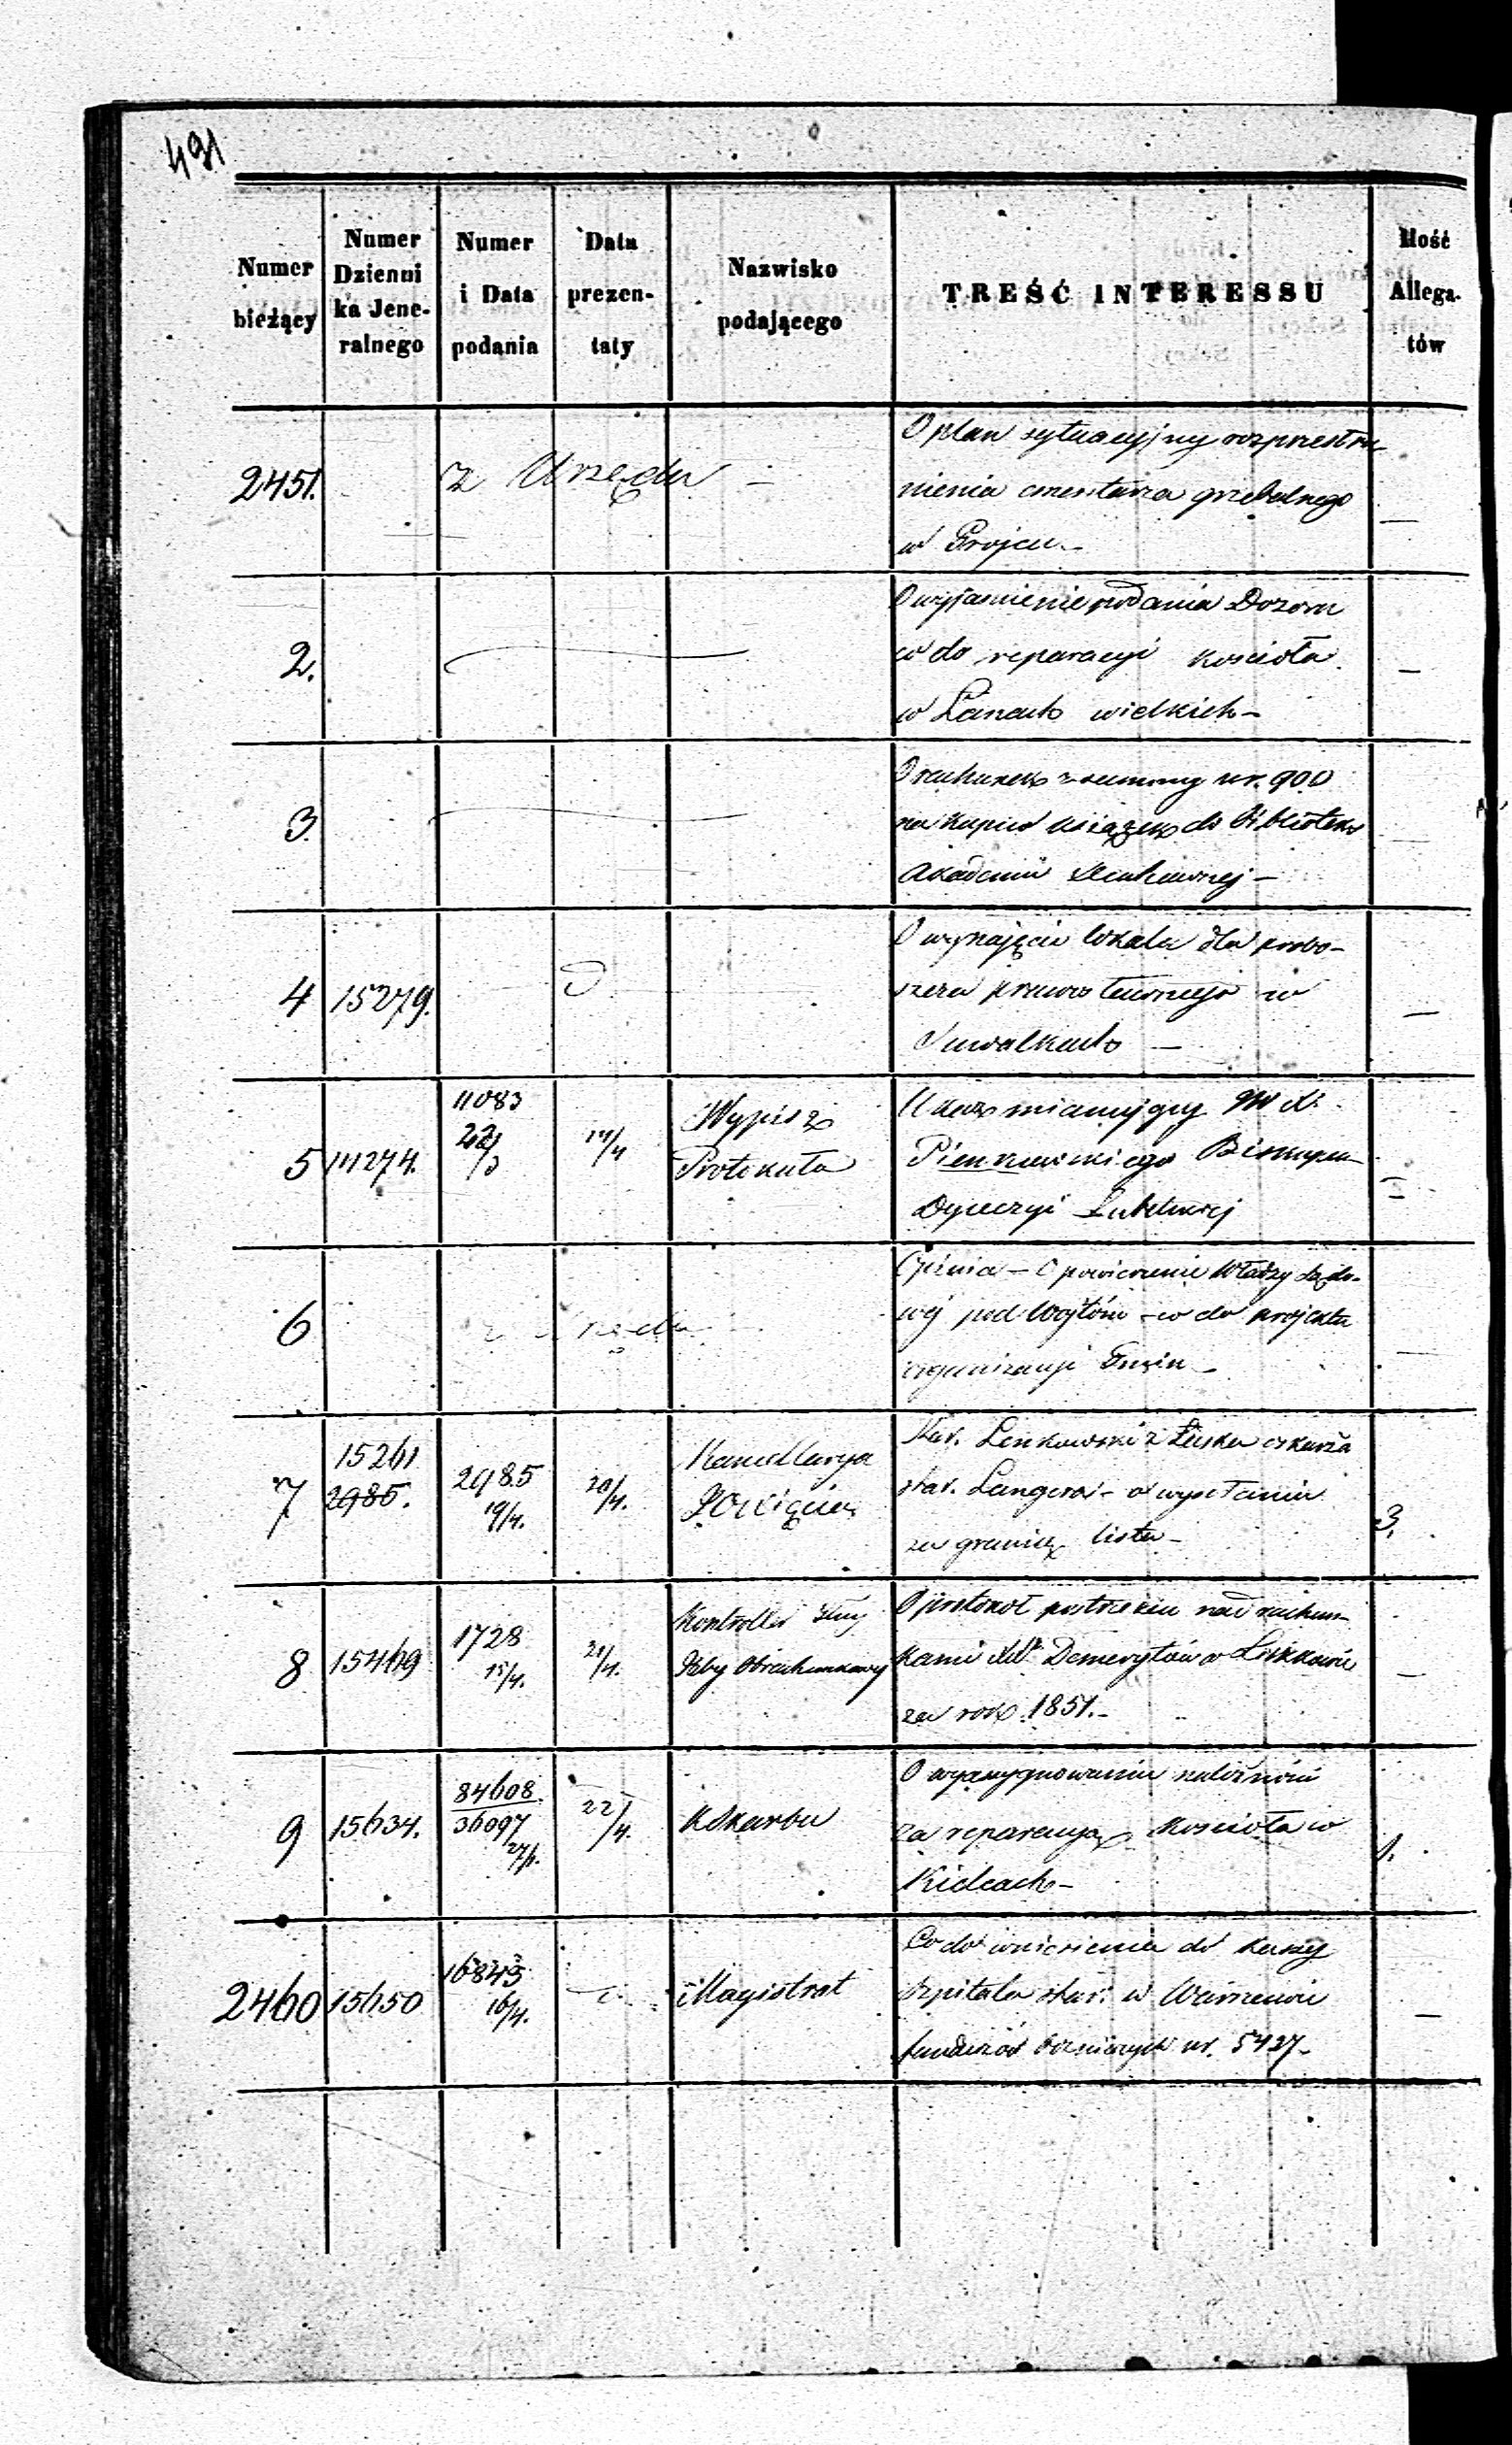 491
Numer bieżący
Numer Dziennika Jeneralnego
Numer i Data podania
Data prezentaty
Nazwisko podającego
TREŚĆ INTERESSU
Ilość Allegatów
2451. z Urzędu —
O plan sytuacyjny rozprzestrze
nienia cmentarza grzebalnego
w Grojcu. —
2.
O wyjaśnienie podania Dozoru
w do reparacyi kościoła
w Łanach wielkich —
3.
O rachunek z summy rs. 900
na kupno książek do Biblioteki
Akademii Duchownej —
4 15279.
O wynajęcie lokalu dla probo-
szcza prawosławnego w
Suwałkach —
5 14274. 11083 22/3 14/4
Wypis z
Protokułu
Ukaz mianujący
Pieńkowskiego Biskupem
Dyecezyi Lubelskiej
6 z Urzędu
Opinia — O powierzenie Władzy Sądo-
wej pod Wójtów — w do projektu
organizacyi Gmin —
7 15261 2985. 2985 19/4. 20/4.
Kancellarya
Star. Lenkowski z Łaska oskarża
star. Langera — o wysełanie
za granicę listu —
3.
8 15469 1728 15/4. 21/4.
Kontroller
Izby Obrachunkowej
O protokoł postrzeżeń nad rachun-
kami Demerytów w Liszkowie
za rok 1851. —
9 15634. 84608 36097 27/1. 22/4.
K Skarbu
O wyasygnowanie należności
za reparacyą Kościoła w
Kielcach —
1.
2460 15650 16843 16/4.
Magistrat
Co do wniesienia do kassy
Szpitala star. w Warszawie
funduszów bożniczych rs. 5427 —